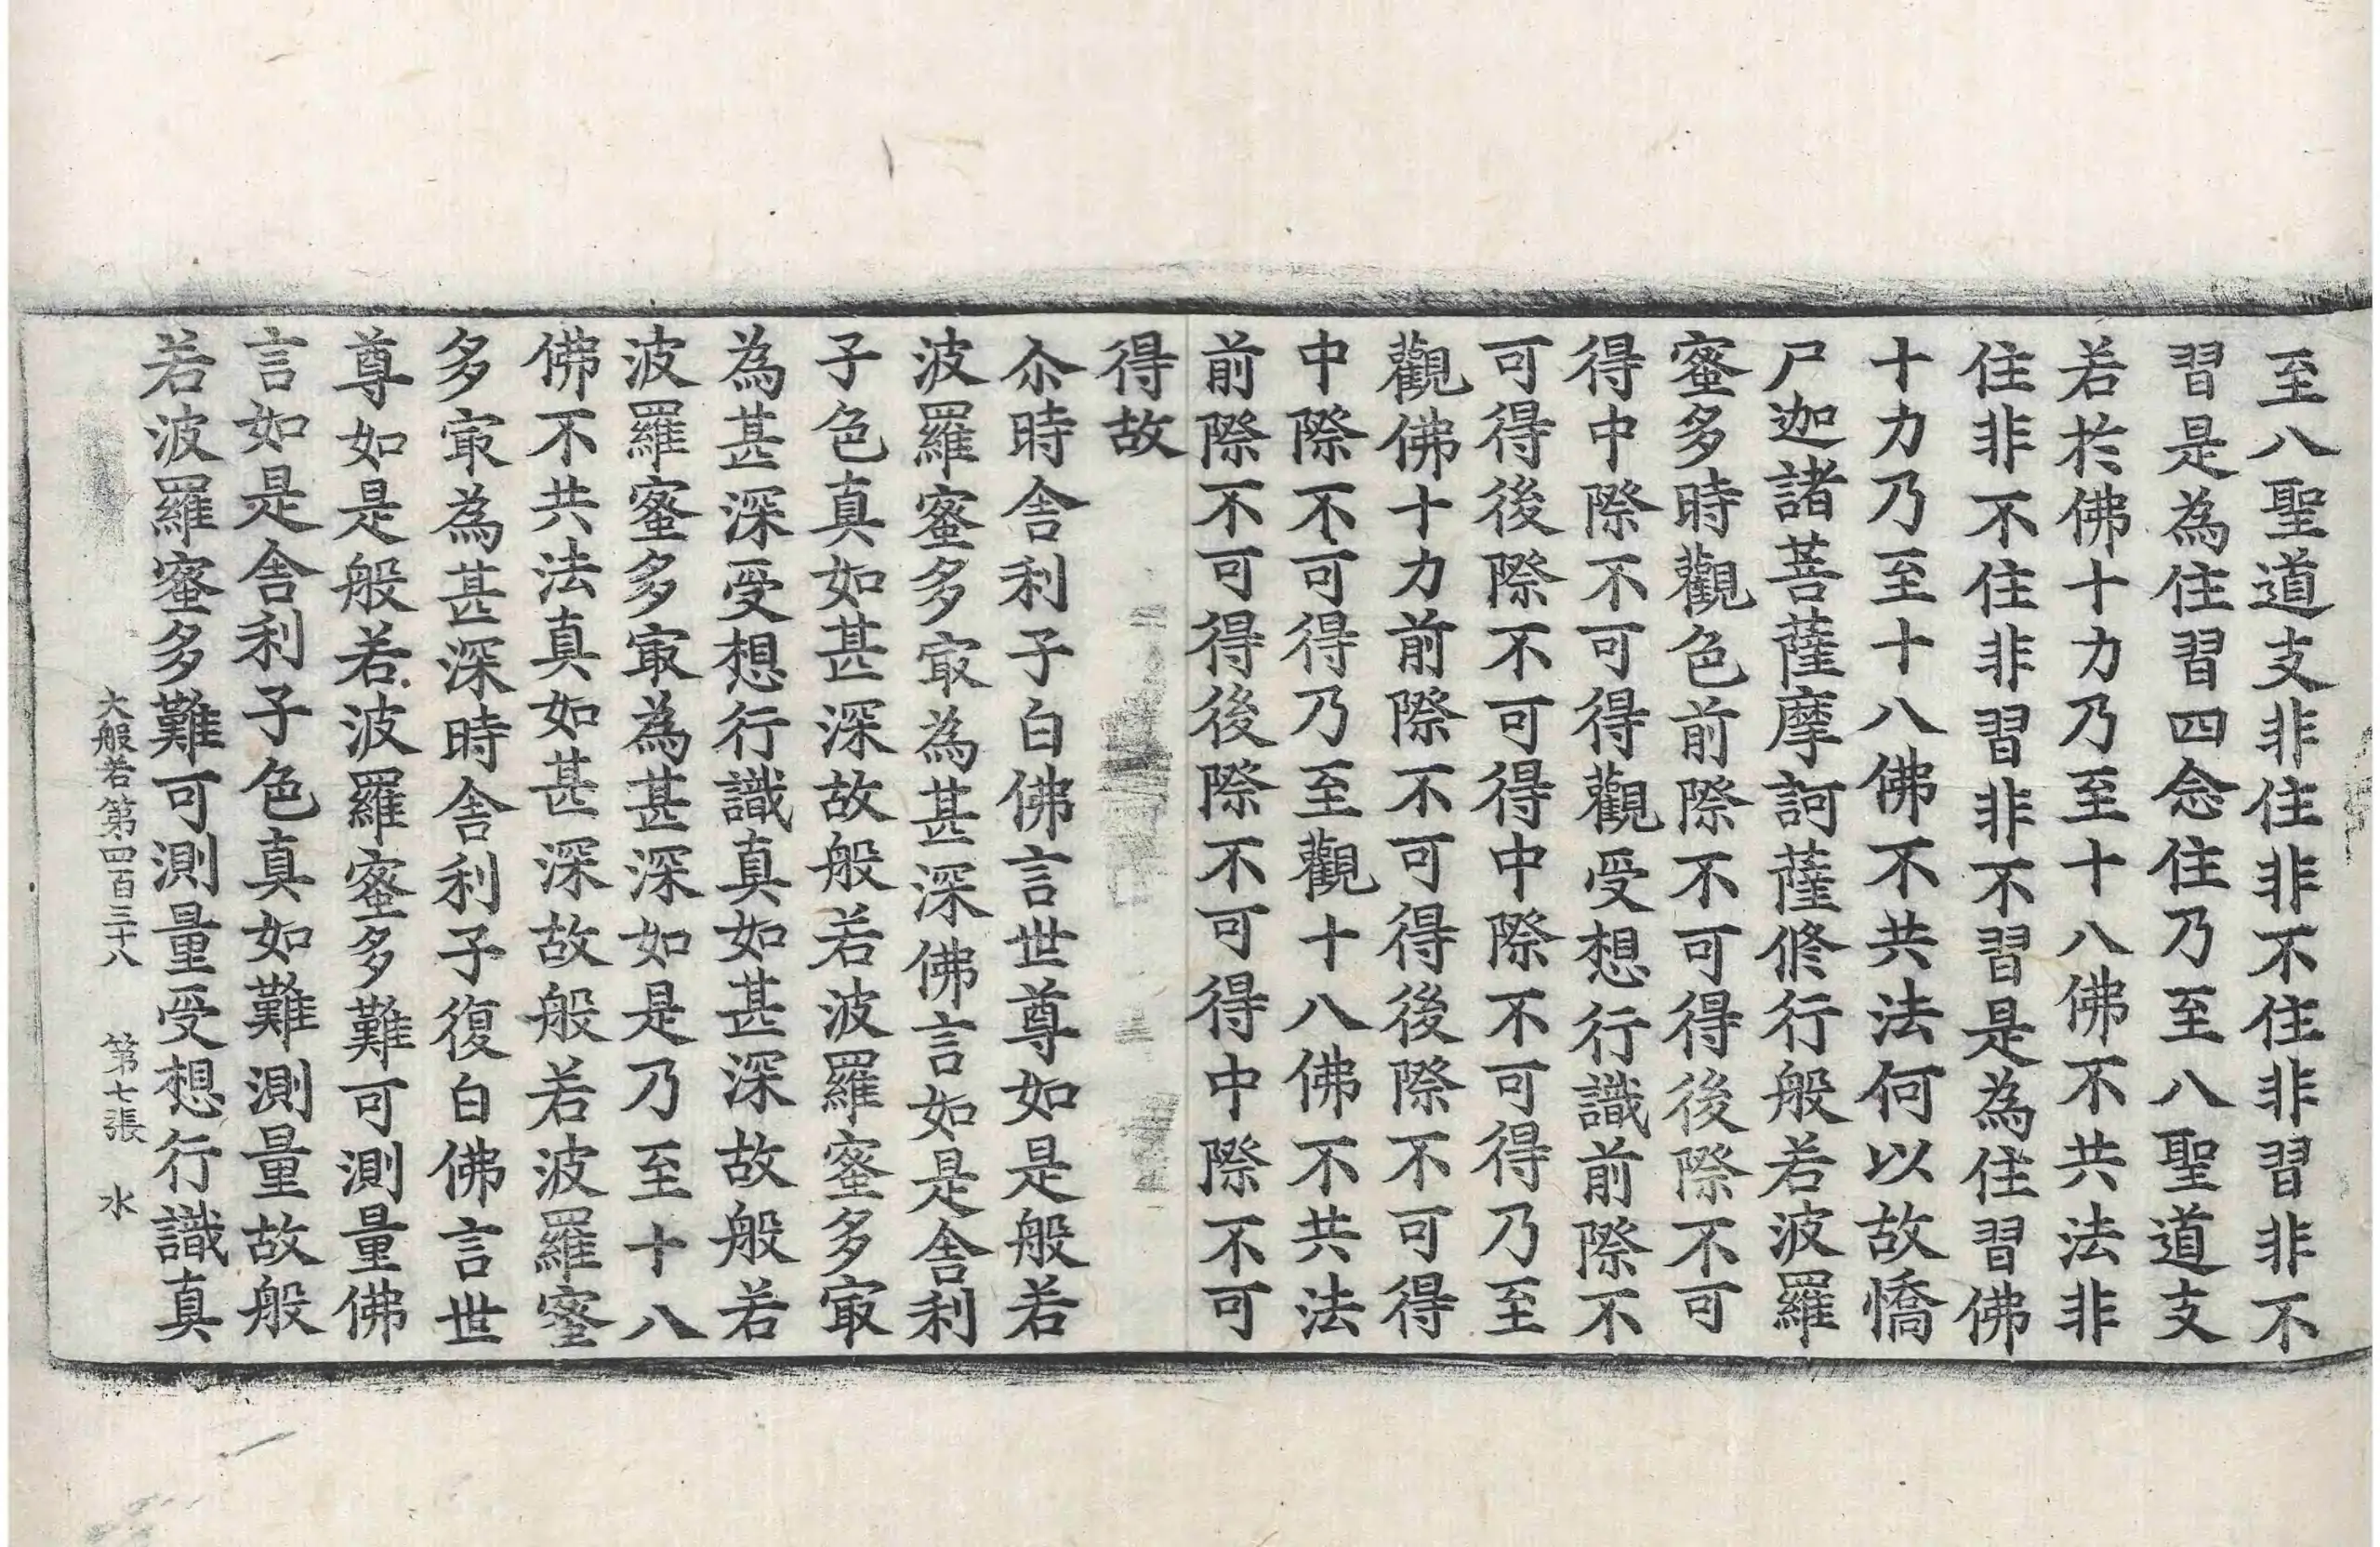 至八聖道支非住非不住非習非不
習是為住習四念住乃至八聖道支
若於佛十力乃至十八佛不共法非
住非不住非習非不習是為住習佛
十力乃至十八佛不共法何以故憍
尸迦諸菩薩摩訶薩修行般若波羅
蜜多時觀色前際不可得後際不可
得中際不可得觀受想行識前際不
可得後際不可得中際不可得乃至
觀佛十力前際不可得後際不可得
中際不可得乃至觀十八佛不共法
前際不可得後際不可得中際不可
得故
尒時舎利子白佛言世尊如是般若
波羅蜜多㝡為甚深佛言如是舎利
子色真如甚深故般若波羅蜜多㝡
為甚深受想行識真如甚深故般若
波羅蜜多㝡為甚深如是乃至十八
佛不共法真如甚深故般若波羅蜜
多㝡為甚深時舎利子復白佛言世
尊如是般若波羅蜜多難可測量佛
言如是舎利子色真如難測量故般
若波羅蜜多難可測量受想行識真
大般若第四百三十八　第七張　水